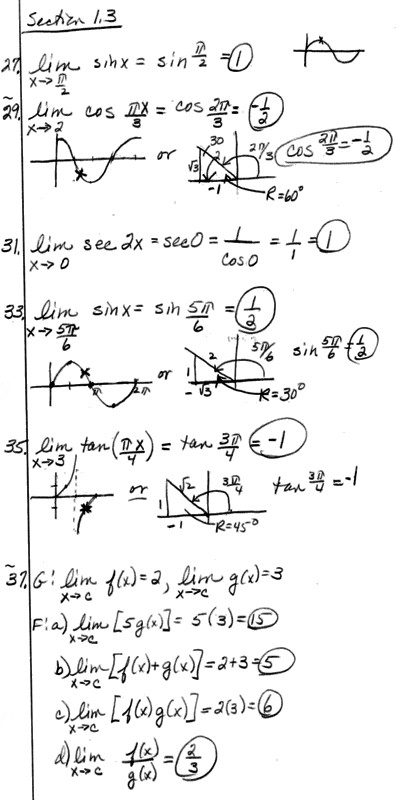 Section 1.3
27. lim x→π/2 sin x = sin π/2 = 1
~29. lim x→2 cos πx/3 = cos 2π/3 = -1/2
or √3 30 2 -1 2π/3 cos 2π/3 = -1/2
R=60°
31. lim x→0 sec 2x = sec 0 = 1/cos 0 = 1/1 = 1
33. lim x→5π/6 sin x = sin 5π/6 = 1/2
π 2π or 1 2 -√3 5π/6 sin 5π/6 = 1/2
R=30°
35. lim x→3 tan(πx/4) = tan 3π/4 = -1
or 1 √2 -1 3π/4 tan 3π/4 = -1
R=45°
~37. G: lim x→c f(x)=2, lim x→c g(x)=3
F: a) lim x→c [5g(x)] = 5(3) = 15
b) lim x→c [f(x)+g(x)] = 2+3 = 5
c) lim x→c [f(x)g(x)] = 2(3) = 6
d) lim x→c f(x)/g(x) = 2/3